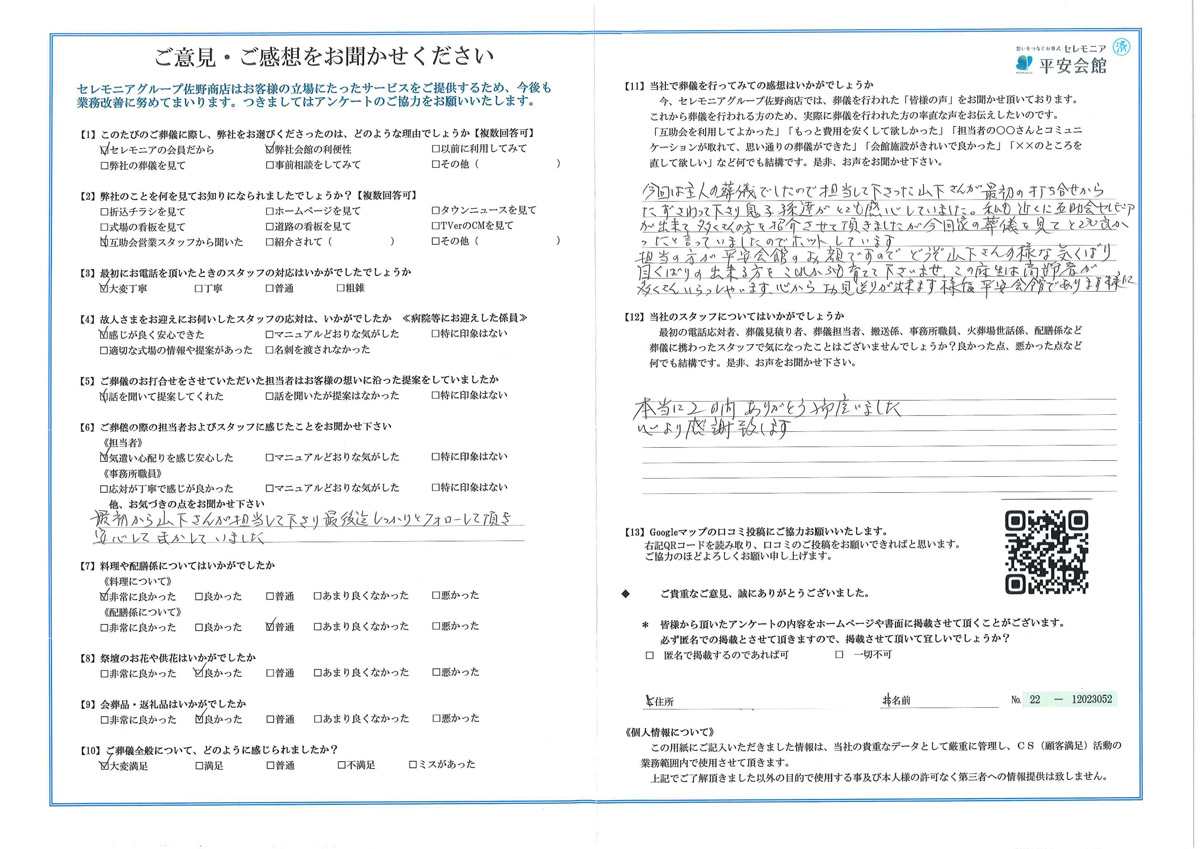 ご意見・ご感想をお聞かせください
セレモニアグループ佐野商店はお客様の立場にたったサービスをご提供するため、今後も
業務改善に努めてまいります。つきましてはアンケートのご協力をお願いいたします。
【1】このたびのご葬儀に際し、弊社をお選びくださったのは、どのような理由でしょうか【複数回答可】
☑セレモニアの会員だから ☑弊社会館の利便性 □以前に利用してみて
□弊社の葬儀を見て □事前相談をしてみて □その他（ ）
【2】弊社のことを何を見てお知りになられましたでしょうか？【複数回答可】
□折込チラシを見て □ホームページを見て □タウンニュースを見て
□式場の看板を見て □道路の看板を見て □TVerのCMを見て
☑互助会営業スタッフから聞いた □紹介されて（ ） □その他（ ）
【3】最初にお電話を頂いたときのスタッフの対応はいかがでしたでしょうか
☑大変丁寧 □丁寧 □普通 □粗雑
【4】故人さまをお迎えにお伺いしたスタッフの応対は、いかがでしたか ≪病院等にお迎えした係員≫
☑感じが良く安心できた □マニュアルどおりな気がした □特に印象はない
□適切な式場の情報や提案があった □名刺を渡されなかった
【5】ご葬儀のお打合せをさせていただいた担当者はお客様の想いに沿った提案をしていましたか
☑話を聞いて提案してくれた □話を聞いたが提案はなかった □特に印象はない
【6】ご葬儀の際の担当者およびスタッフに感じたことをお聞かせ下さい
《担当者》
☑気遣い心配りを感じ安心した □マニュアルどおりな気がした □特に印象はない
《事務所職員》
□応対が丁寧で感じが良かった □マニュアルどおりな気がした □特に印象はない
他、お気づきの点をお聞かせ下さい
最初から山下さんが担当して下さり最後迄しっかりとフォローして頂き
安心してまかしていました
【7】料理や配膳係についてはいかがでしたか
《料理について》
☑非常に良かった □良かった □普通 □あまり良くなかった □悪かった
《配膳係について》
□非常に良かった □良かった ☑普通 □あまり良くなかった □悪かった
【8】祭壇のお花や供花はいかがでしたか
□非常に良かった ☑良かった □普通 □あまり良くなかった □悪かった
【9】会葬品・返礼品はいかがでしたか
□非常に良かった ☑良かった □普通 □あまり良くなかった □悪かった
【10】ご葬儀全般について、どのように感じられましたか？
☑大変満足 □満足 □普通 □不満足 □ミスがあった
想いをつなぐお葬式 セレモニア 済
平安会館
【11】当社で葬儀を行ってみての感想はいかがでしょうか
今、セレモニアグループ佐野商店では、葬儀を行われた「皆様の声」をお聞かせ頂いております。
これから葬儀を行われる方のため、実際に葬儀を行われた方の率直な声をお伝えしたいのです。
「互助会を利用してよかった」「もっと費用を安くして欲しかった」「担当者の〇〇さんとコミュニ
ケーションが取れて、思い通りの葬儀ができた」「会館施設がきれいで良かった」「××のところを
直して欲しい」など何でも結構です。是非、お声をお聞かせ下さい。
今回は主人の葬儀でしたので担当して下さった山下さんが最初の打ち合せから
たずさわって下さり息子孫達がとても感心していました。私も近くに互助会セレモニア
が出来て多くさんの方を紹介させて頂きましたが今回家の葬儀を見てとても良か
ったと言っていましたのでホットしています
担当の方が平安会館のお顔ですのでどうぞ山下さんの様な気くばり
目くばりの出来る方をこれからも育てて下さいませ、この麻生は高齢者が
多くさんいらっしゃいます、心からお見送りが出来ます様な平安会館であります様に
【12】当社のスタッフについてはいかがでしょうか
最初の電話応対者、葬儀見積り者、葬儀担当者、搬送係、事務所職員、火葬場世話係、配膳係など
葬儀に携わったスタッフで気になったことはございませんでしょうか？良かった点、悪かった点など
何でも結構です。是非、お声をお聞かせ下さい。
本当に2日間ありがとう御座いました
心より感謝致します
【13】Googleマップの口コミ投稿にご協力お願いいたします。
右記QRコードを読み取り、口コミのご投稿をお願いできればと思います。
ご協力のほどよろしくお願い申し上げます。
◆ ご貴重なご意見、誠にありがとうございました。
＊ 皆様から頂いたアンケートの内容をホームページや書面に掲載させて頂くことがございます。
必ず匿名での掲載とさせて頂きますので、掲載させて頂いて宜しいでしょうか？
□ 匿名で掲載するのであれば可 □ 一切不可
ご住所 お名前 № 22 － 12023052
《個人情報について》
この用紙にご記入いただきました情報は、当社の貴重なデータとして厳重に管理し、ＣＳ（顧客満足）活動の
業務範囲内で使用させて頂きます。
上記でご了解頂きました以外の目的で使用する事及び本人様の許可なく第三者への情報提供は致しません。